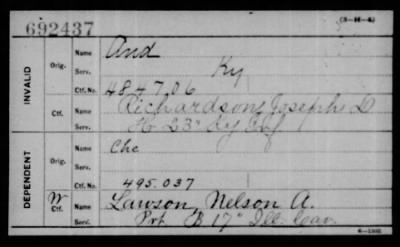 692437
(3-M-4)
INVALID
Orig.
Name
And
Serv.
Ky
Ctf. No.
484706
Ctf.
Name
Richardson, Joseph D
Serv.
Ho 23" Ky Inf
DEPENDENT
Orig.
Name
Chc
Serv.
Ctf. No.
495.037
W
Ctf.
Name
Lawson, Nelson A.
Serv.
Pvt B 17" Ill. Cav.